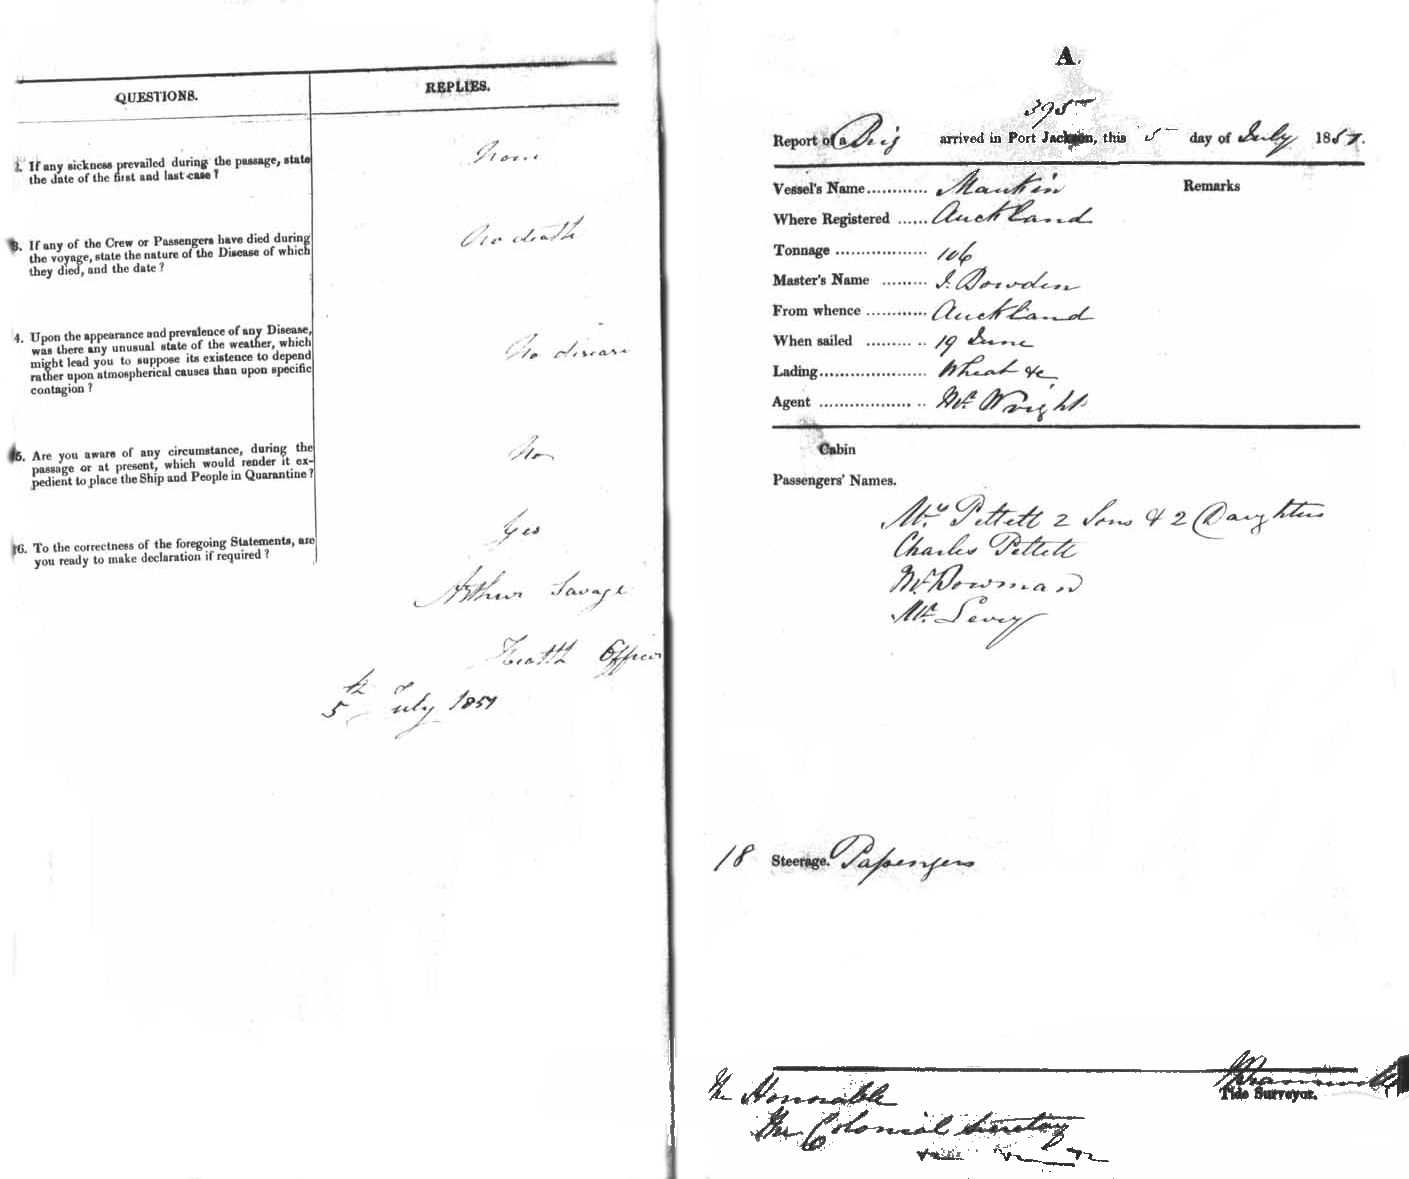 QUESTIONS.
REPLIES.
2. If any sickness prevailed during the passage, state
the date of the first and last case ?
None
3. If any of the Crew or Passengers have died during
the voyage, state the nature of the Disease of which
they died, and the date ?
No death
4. Upon the appearance and prevalence of any Disease,
was there any unusual state of the weather, which
might lead you to suppose its existence to depend
rather upon atmospherical causes than upon specific
contagion ?
No disease
5. Are you aware of any circumstance, during the
passage or at present, which would render it ex-
pedient to place the Ship and People in Quarantine ?
No
6. To the correctness of the foregoing Statements, are
you ready to make declaration if required ?
Yes
Arthur Savage
Health Officer
5th July 1857
A.
395
Report of a Brig arrived in Port Jackson, this 5 day of July 1857.
Vessel's Name............ Maukin
Remarks
Where Registered ...... Auckland
Tonnage .................. 106
Master's Name ......... J. Bowden
From whence ............ Auckland
When sailed ......... .. 19 June
Lading...................... Wheat &c
Agent .................. .. Mr. Wright
Cabin
Passengers' Names.
Mrs. Pettett 2 Sons & 2 Daughters
Charles Pettett
Mr. Bowman
Mr. Levey
18 Steerage. Passengers
Tide Surveyor.
The Honorable
The Colonial Secretary